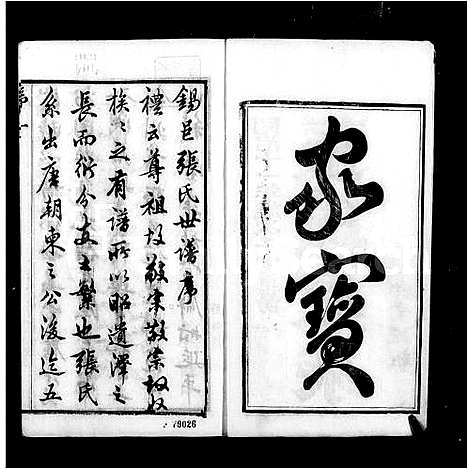 家寶
錫邑張氏世譜序
禮云尊祖故敬宗敬宗故收
族之有譜所以昭遺澤之
長而衍分支之繁也張氏
系出唐朝東之公後迄五
序
一
79026